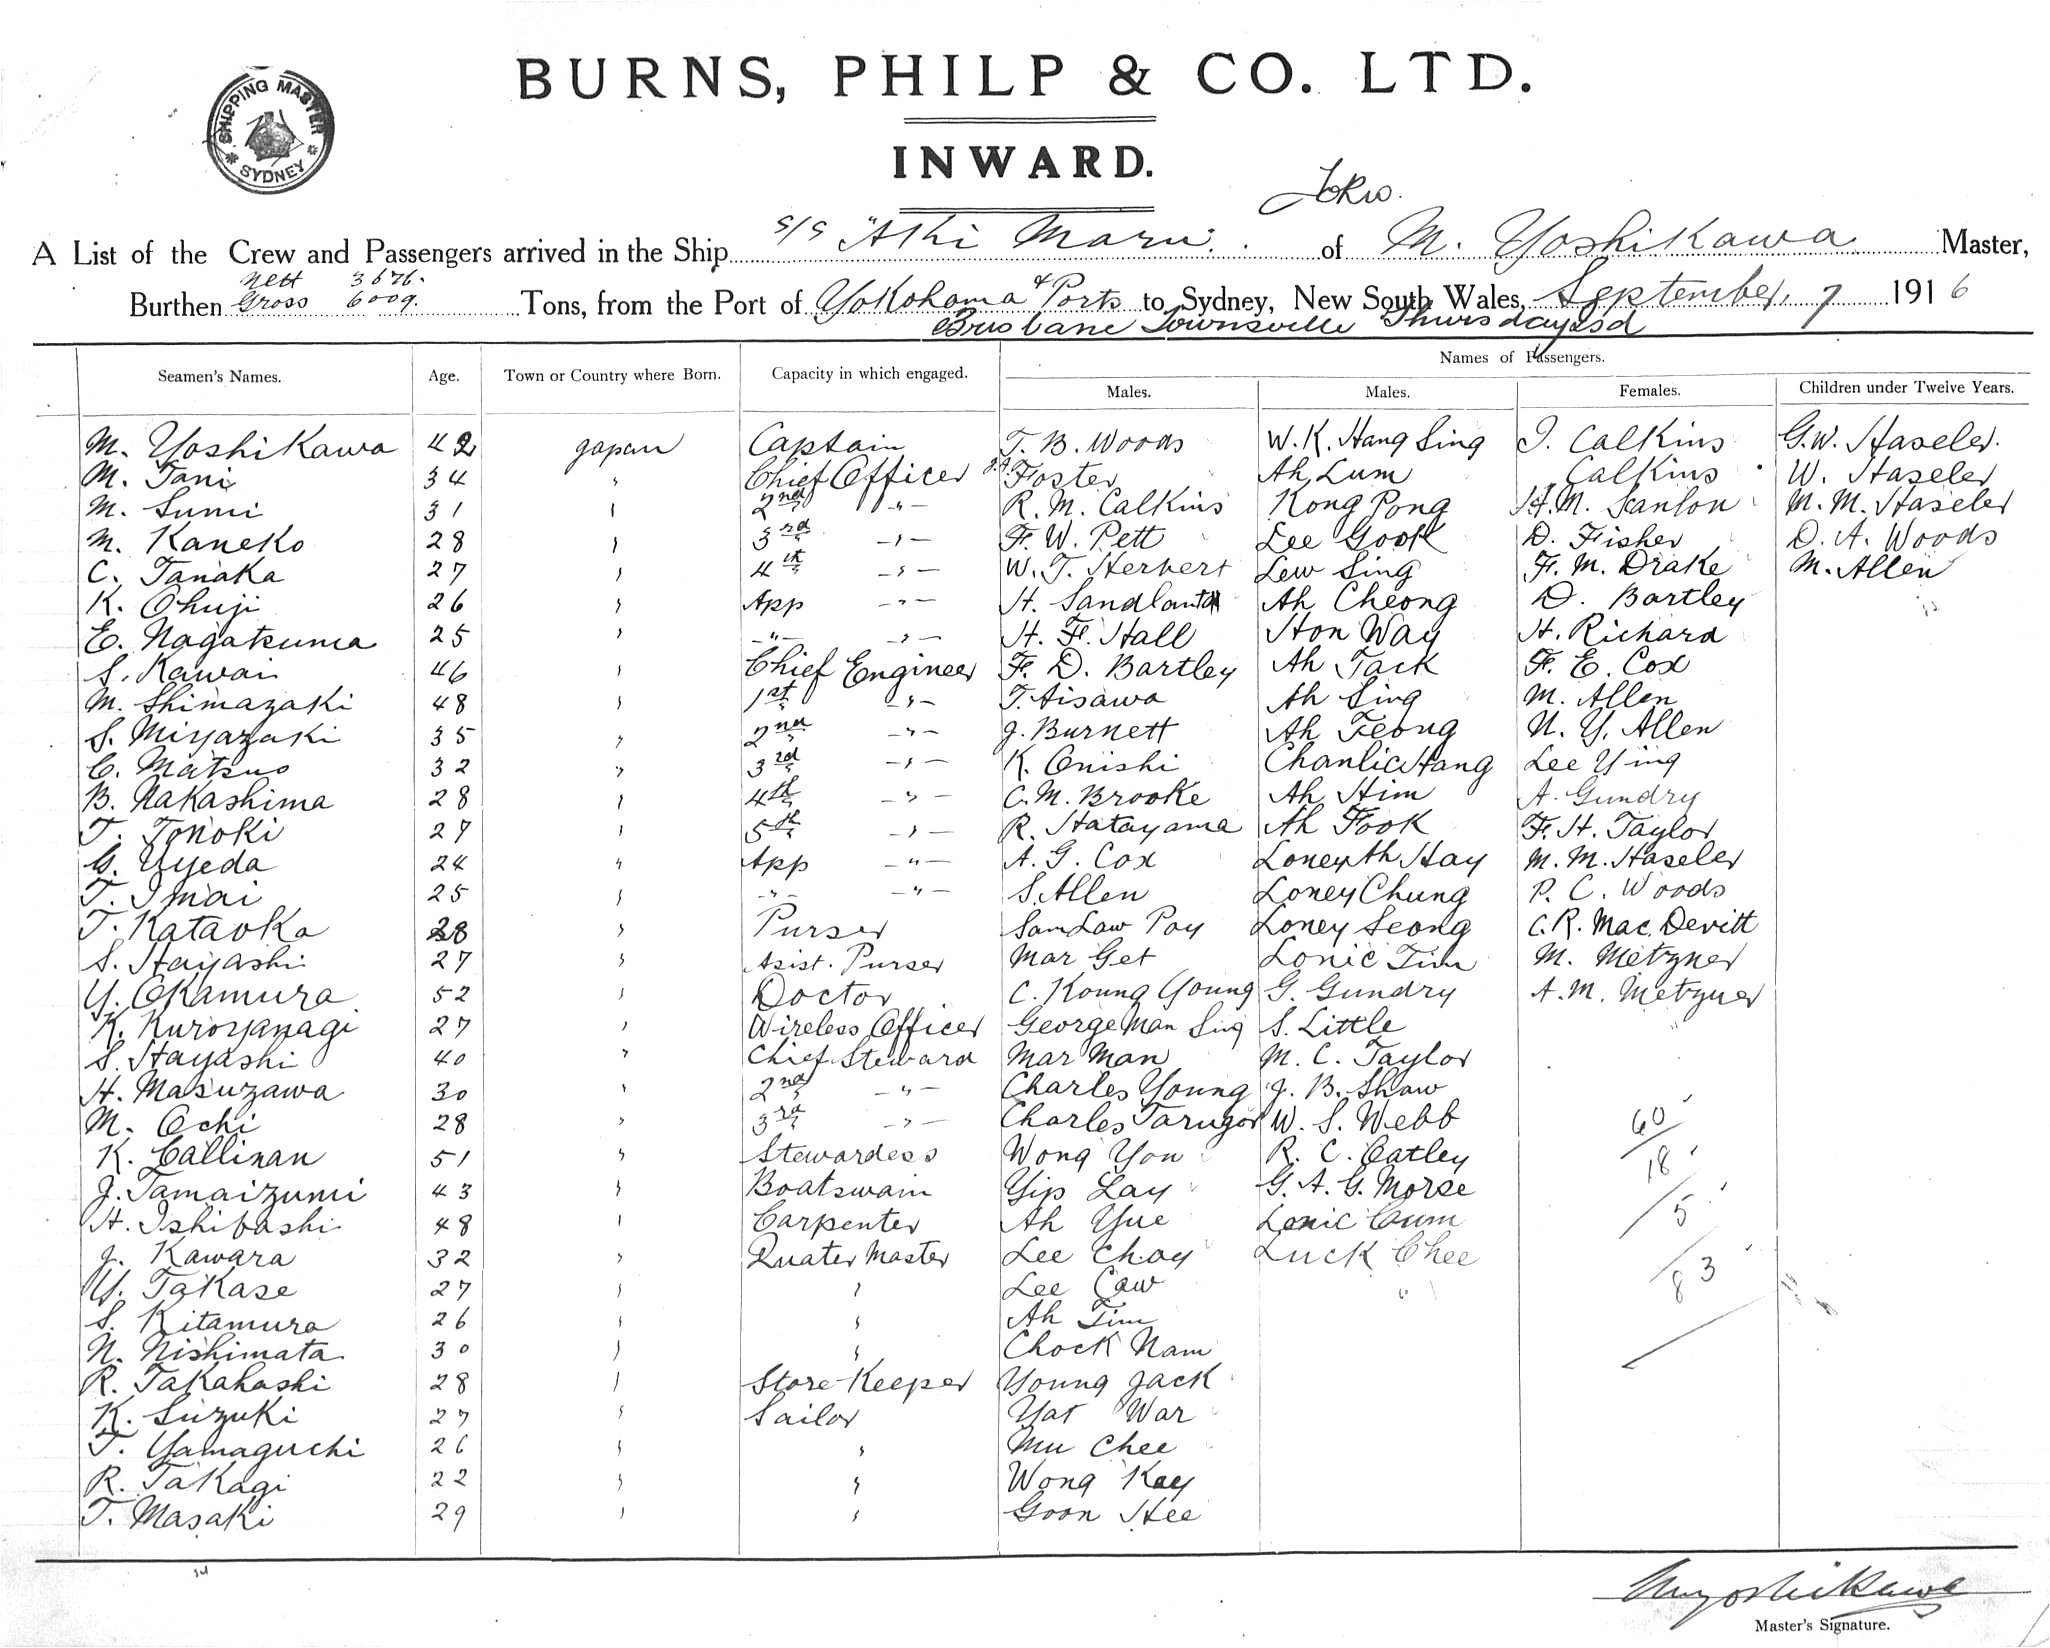 BURNS, PHILP & CO. LTD.
SHIPPING MASTER
SYDNEY
INWARD.
Tokio.
A List of the Crew and Passengers arrived in the Ship s/s "Aki Maru". of M. Yoshikawa Master,
Nett 3676.
Burthen Gross 6009. Tons, from the Port of Yokohama & Ports to Sydney, New South Wales, September, 7 1916
Brisbane Townsville Thursday Isd
Names of Passengers.
Seamen's Names. Age. Town or Country where Born. Capacity in which engaged. Males. Males. Females. Children under Twelve Years.
M. Yoshikawa 42 Japan Captain T. B. Woods W. K. Hang Sing I. Calkins G. W. Haseler.
M. Tani 34 " Chief Officer J. A. Foster Ah Lum Calkins W. Haseler
M. Sumi 31 " 2nd -"- R. M. Calkins Kong Pong H. M. Scanlon M. M. Haseler
M. Kaneko 28 " 3rd -"- F. W. Pett Lee Gook D. Fisher D. A. Woods
C. Tanaka 27 " 4th -"- W. T. Herbert Lew Sing F. M. Drake M. Allen
K. Ohuji 26 " App -"- H. Ah Cheong D. Bartley
E. Nagatsuma 25 " -"- -"- H. F. Hall Hon Way H. Richard
S. Kawai 46 " Chief Engineer F. D. Bartley Ah Tack F. E. Cox
M. Shimazaki 48 " 1st -"- T. Aisawa Ah Sing M. Allen
S. Miyazaki 35 " 2nd -"- J. Burnett Ah Feong N. Y. Allen
C. Matsuo 32 " 3rd -"- K. Onishi Chanlic Hang Lee Ying
B. Nakashima 28 " 4th -"- C. M. Brooke Ah Him A. Gundry
T. Tonoki 27 " 5th -"- R. Hatayama Ah Fook F. H. Taylor
G. Uyeda 24 " App -"- A. G. Cox Loney Ah Hay M. M. Haseler
T. Imai 25 " -"- -"- S. Allen Loney Chung P. C. Woods
T. Kataoka 28 " Purser Sam Law Poy Loney Seong C. R. Mac Devitt
S. Hayashi 27 " Asist. Purser Mar Get Lonic Tim M. Metzner
Y. Okamura 52 " Doctor C. Koung Young G. Gundry A. M. Metzner
K. Kuroyanagi 27 " Wireless Officer George Man Sing S. Little
S. Hayashi 40 " Chief Steward Mar Man M. C. Taylor
H. Masuzawa 30 " 2nd -"- Charles Young J. B. Shaw
M. Ochi 28 " 3rd -"- Charles Tarugor W. S. Webb 60
K. Callinan 51 " Stewardess Wong You R. C. Catley 18
J. Tamaizumi 43 " Boatswain Yip Lay G. A. G. Morse
H. Ishibashi 48 " Carpenter Ah Yue Lonic Cum 5
J. Kawara 32 " Quater Master Lee Choy Luck Chee 83
Y. Takase 27 " " Lee Caw
S. Kitamura 26 " " Ah Tim
N. Nishimata 30 " " Chock Nam
R. Takahashi 28 " Store-Keeper Young Jack
K. Suzuki 27 " Sailor Yat War
T. Yamaguchi 26 " " Mu Chee
R. Takagi 22 " " Wong Kay
T. Masaki 29 " " Goon Hee
M Yoshikawa
Master's Signature.